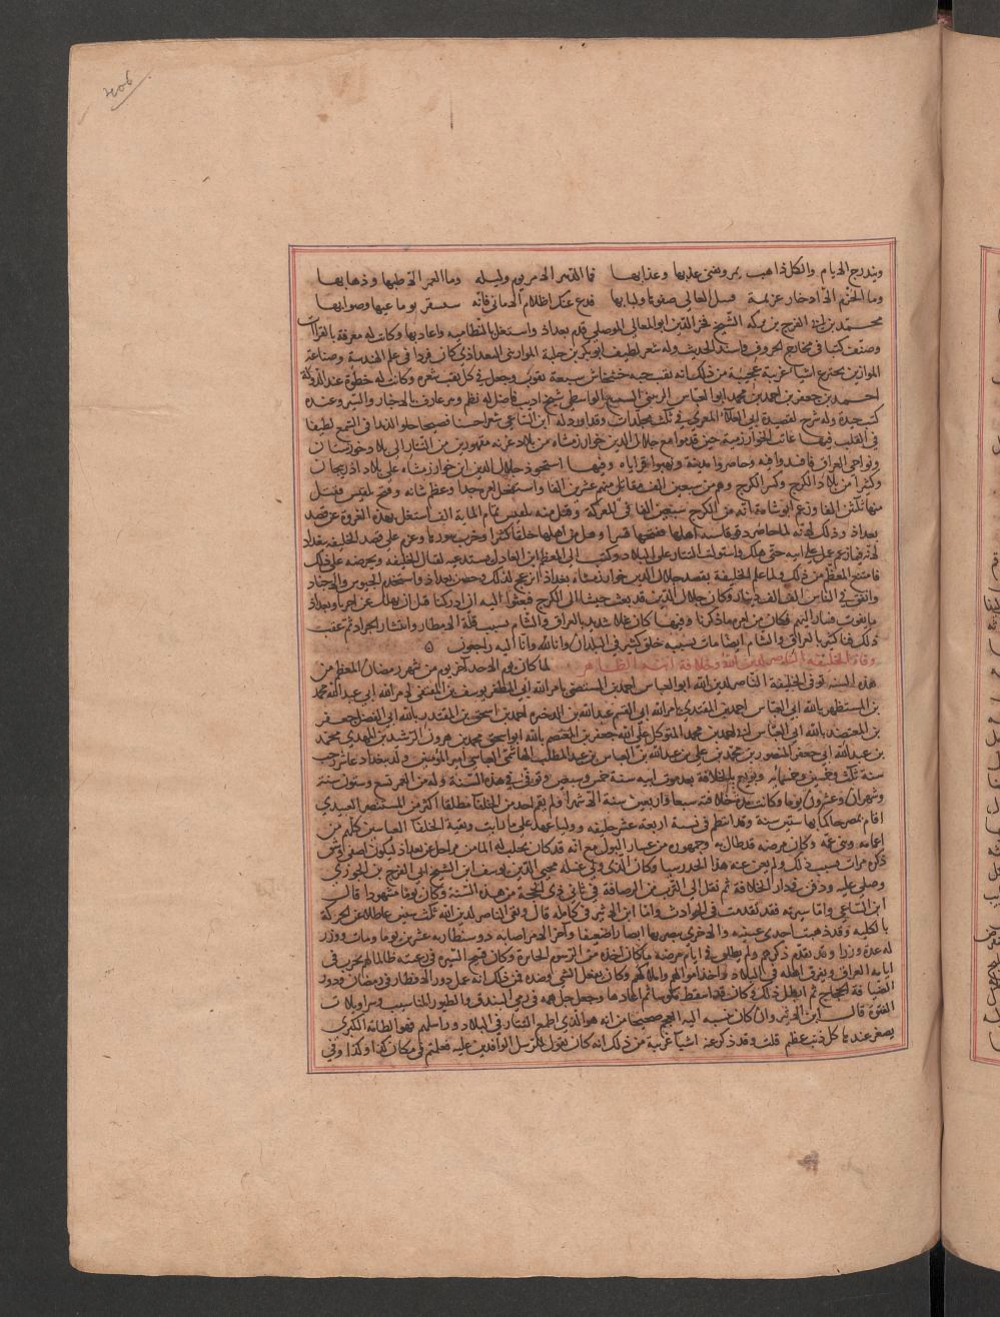 ويندرج الايام والكل ذاهب يمر ويفنى عذبها وعذابها فما الدهر الا مر يوم وليلة وما العمر الا طيها وذهابها
وما الحزم الا ادخار عزيمة فسل المعالي صفوها ولبابها فدع عنك احلام الاماني فانه سيسفر يوما غيها وصوابها
محمد بن ابي الفرج بن بركه الشيخ فخر الدين ابو المعالي الموصلي قدم بغداد واشتغل بالنظاميه واعاد بها وكانت له معرفة بالقراات
وصنف كتابا في مخارج الحروف واسند الحديث وله شعر لطيف ابو بكر بن حلبة الموازيني البغداذي كان فردا في علم الهندسة وصناعة
الموازين يخترع اشيا غريبة عجيبة من ذلك انه نقب حبه خشخاش سبعة نقوب وجعل في كل نقب شعره وكانت له حظوة عند الدولة
احمد بن جعفر بن احمد بن محمد ابو العباس الواسطي شيخ اديب فاضل له نظم ونثر عارف بالاخبار والسير وعنده
كتب جيدة وله شرح لقصيدة ابي العلاء المعري في ثلث مجلدات وقد اورد له ابن الساعي شعرا حسنا فصيحا حلوا لذيذا في السمع لطيفا
في القلب فيها عاثت الخوارزمية حين قدموا مع جلال الدين خوارزمشاه من بلاد غزنه مقهورين من التتار الى بلاد خوزستان
ونواحي العراق فافسدوا فيه وحاصروا مدينة ونهبوا قراياه وفيها استحوذ جلال الدين ابن خوارزمشاه على بلاد اذربيجان
وكثيرا من بلاد الكرج وكسر الكرج وهم في سبعين الف مقاتل فقتل منهم عشرين الفا واستفحل امره جدا وعظم شانه وفتح تفليس فقتل
منها ثلثين الفا وزعم ابو شامة انه من الكرج سبعين الفا في المعركة وقتل من تفليس تمام الماية الف اشتغل بهذه الغزوة عن قصد
بغداذ وذلك انه لما حاصر دقوقا سبه اهلها ففتحها قسرا وقتل من اهلها خلقا كثيرا وخرب سورها وعزم على قصد الخليفه ببغداد
لانه فيما زعم عمل على ابيه حتى هلك واستولت التتار على البلاد وكتب الى المعظم ابن العادل يستدعيه لقتال الخليفه ويحرضه على ذلك
فامتنع المعظم من ذلك ولما علم الخليفة بقصد جلال الدين خوارزمشاه بغداذ انزعج لذلك وحصن بغداذ واستخدم الجيوش والاجناد
وانفق في الناس الف الف دينار وكان جلال الدين قد بعث جيشا الى الكرج فبعثوا اليه ان ادركنا قبل ان نهلك عن اخرنا وبغداذ
ما تفوت فسار اليهم فكان من امره ما ذكرنا وفيها كان غلاء شديد بالعراق والشام بسبب قلة الامطار وانتشار الجراد ثم عقب
ذلك فناء كثير بالعراق والشام ايضا مات بسببه خلق كثير في البلدان وانا لله وانا اليه راجعون
وفاة الخليفه الناصر لدين الله وخلافة ابنه الظاهر لما كان يوم الاحد اخر يوم من شهر رمضان المعظم من
هذه السنه توفي الخليفة الناصر لدين الله ابو العباس احمد بن المستضي بامر الله ابي المظفر يوسف بن المقتفي لامر الله ابي عبد الله محمد
بن المستظهر بالله ابي العباس احمد بن المقتدي بامر الله ابي القسم عبد الله بن الذخيره احمد بن اسحق بن المقتدر بالله ابي الفضل جعفر
بن المعتضد بالله ابي العباس احمد بن محمد المتوكل على الله جعفر بن المعتصم بالله ابو اسحق محمد بن هرون الرشيد بن المهدي محمد
بن عبد الله ابي جعفر المنصور بن محمد بن علي بن عبد الله بن العباس بن عبد المطلب الهاشمي العباسي امير المؤمنين ولد ببغداد عاشر رجب
سنة ثلث وخمسين وخمسمايه وبويع بالخلافة بعد موت ابيه سنة خمس وسبعين وتوفي في هذه السنة وله من العمر تسع وستون سنة
وشهران وعشرون يوما وكانت مدة خلافته سبعا واربعين سنة الا شهرا فلم يقم احد من الخلفا مطلقا اكثر من المستنصر العبيدي
اقام بمصر حاكما بها ستين سنة وقد انتظم في نسبه اربعة عشر خليفه وولي عهد على ما رايت وبقية الخلفا العباسين كلهم من
اعمامه وبني عمه وكان مرضه قد طال به وجمهوره من عسار البول مع انه قد كان يجلب له الما من مراحل عن بغداد ليكون اصفى وشق
ذكره مرات بسبب ذلك ولم يغن عنه هذا الحذر شيا وكان الذي ولي غسله محيي الدين يوسف ابن الشيخ ابي الفرج بن الجوزي
وصلي عليه ودفن في دار الخلافة ثم نقل الى الترب من الرصافة في ثاني ذي الحجة من هذه السنة وكان يوما مشهودا قال
ابن الساعي واما سيرته فقد تقدمت في الحوادث واما ابن الاثير في كامله قال وبقي الناصر لدين الله ثلث سنين عاطلا عن الحركة
بالكليه وقد ذهبت احدى عينيه والاخرى يبصر بها ابصارا ضعيفا واخر الامر اصابه دوسنطاريه عشرين يوما ومات ووزر
له عدة وزرا وقد تقدم ذكرهم ولم يطلق في ايام مرضه ما كان احدثه من الرسوم الجايرة وكان قبيح السيرة في رعيته ظالما لهم فخرب في
ايامه العراق وتفرق اهله في البلاد واخذ اموالهم واملاكهم وكان يفعل الشي وضده فمن ذلك انه عمل دور الافطار في رمضان ودور
الضيافة للحجاج ثم ابطل ذلك وكان قد اسقط مكوسا ثم اعادها وجعل جل همه في رمي البندق والطيور المناسيب وسراويلات
الفتوة قال ابن الاثير وان كان نسبه اليه العجم صحيحا من انه هو الذي اطمع التتار في البلاد وراسلهم فهو الطامه الكبرى
يصغر عندها كل ذنب عظيم قلت وقد ذكر عنه اشيا غريبة من ذلك انه كان يقول للرسل الوافدين عليه فعلتم في مكان كذا وكذا وفي